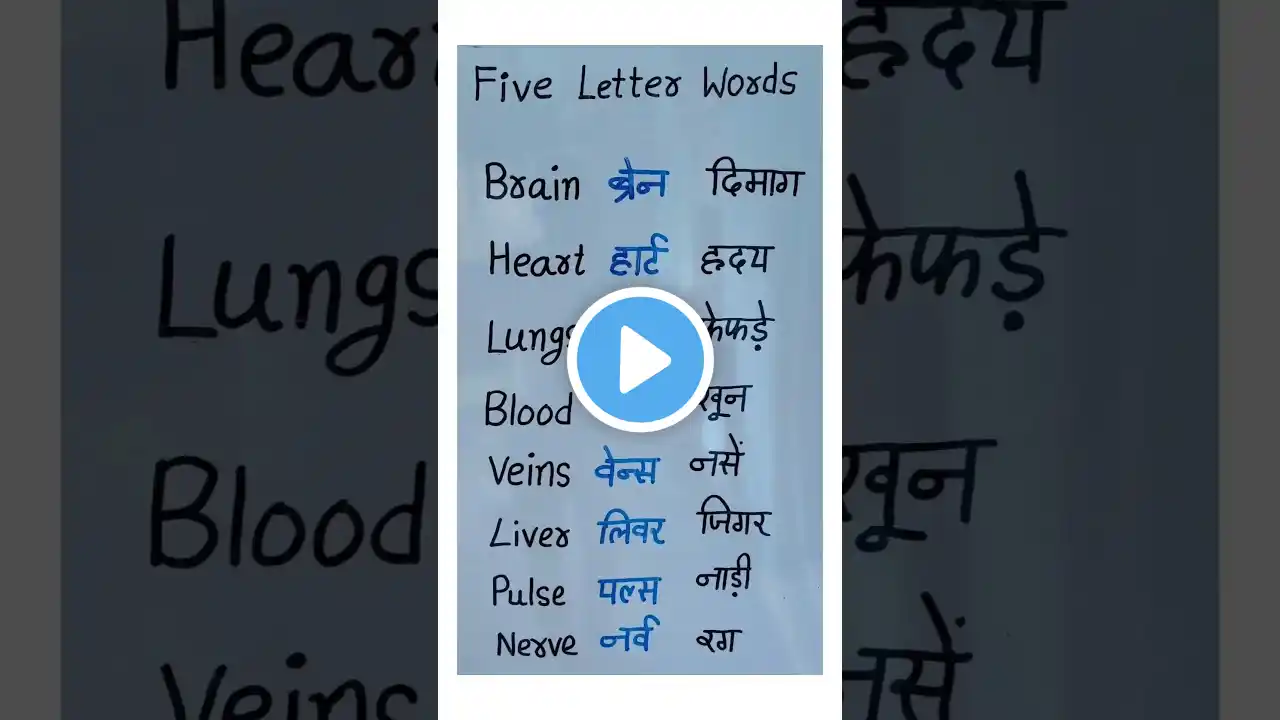 Five Letter Words
Brain ब्रेन दिमाग
Heart हार्ट ह्रदय
Lungs फेफड़े
Blood खून
Veins वेन्स नसें
Liver लिवर जिगर
Pulse पल्स नाड़ी
Nerve नर्व रग